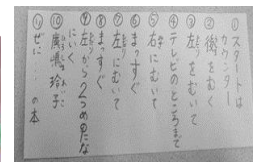 ①スタートは
カウンター
②後をむく
③左をむいて
④テレビのところまで
⑤右にむいて
⑥まっすぐ
⑦左にむいて
⑧まっすぐ
⑨左から2つめのたな
にいく
⑩廣嶋玲子
⑪ぜに の本